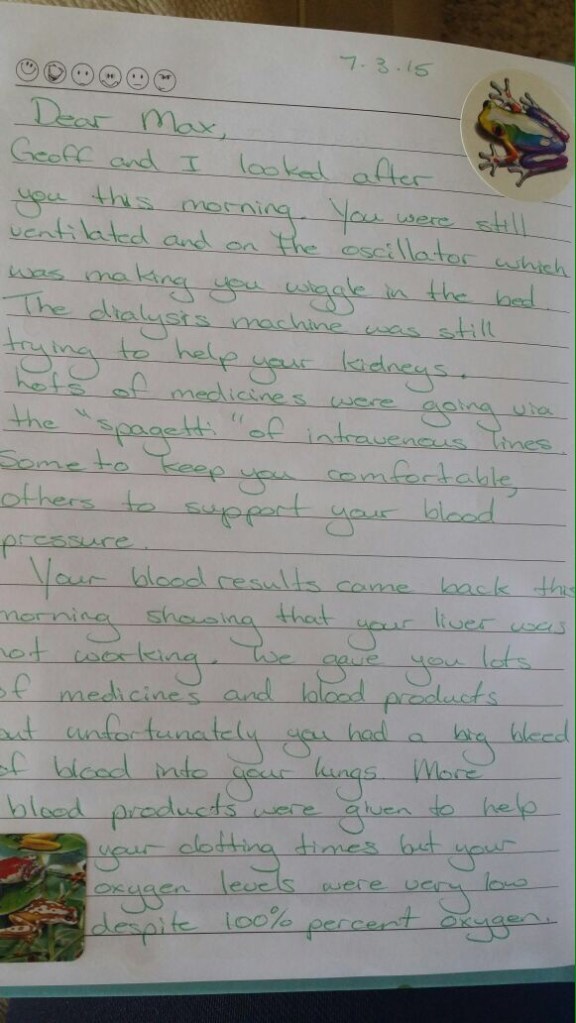 7.3.15
Dear Max,
Geoff and I looked after
you this morning. You were still
ventilated and on the oscillator which
was making you wiggle in the bed.
The dialysis machine was still
trying to help your kidneys.
Lots of medicines were going via
the "spagetti" of intravenous lines.
Some to keep you comfortable,
others to support your blood
pressure.
Your blood results came back this
morning showing that your liver was
not working. We gave you lots
of medicines and blood products
but unfortunately you had a big bleed
of blood into your lungs. More
blood products were given to help
your clotting times but your
oxygen levels were very low
despite 100% percent oxygen.